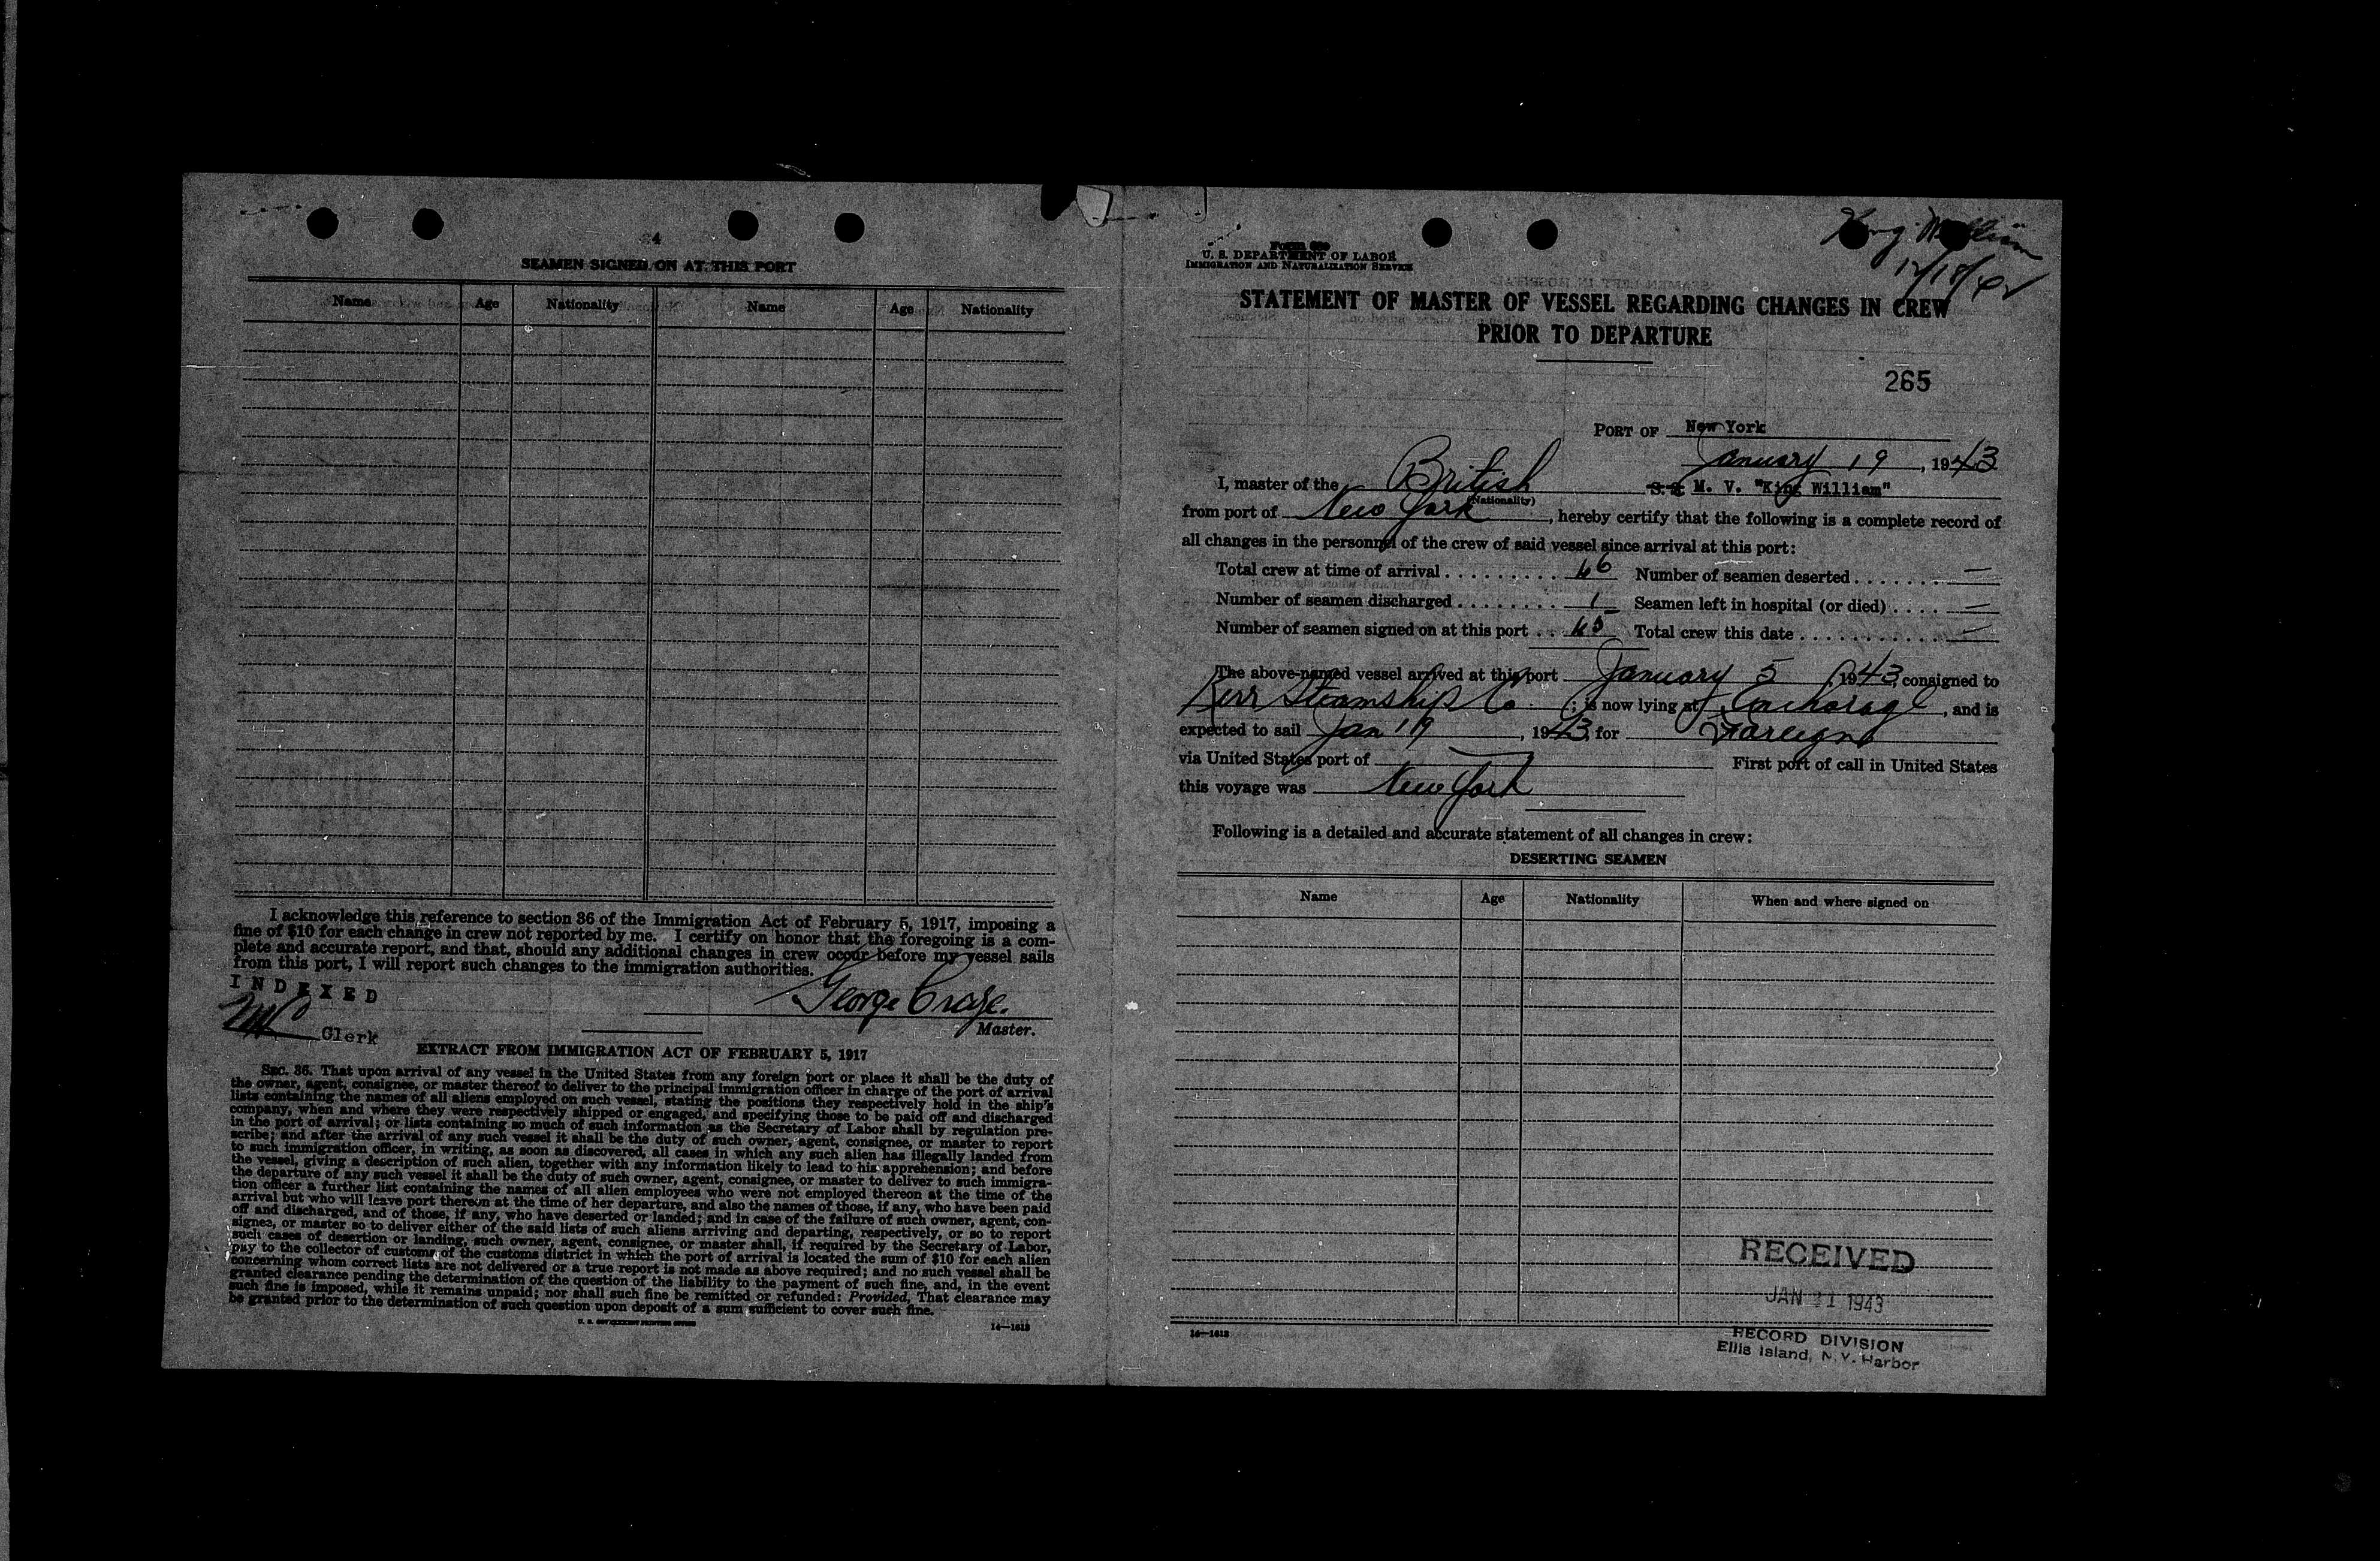 4
SEAMEN SIGNED ON AT THIS PORT
Name Age Nationality Name Age Nationality
I acknowledge this reference to section 36 of the Immigration Act of February 5, 1917, imposing a
fine of $10 for each change in crew not reported by me. I certify on honor that the foregoing is a com-
plete and accurate report, and that, should any additional changes in crew occur before my vessel sails
from this port, I will report such changes to the immigration authorities.
INDEXED
George Craze.
Clerk
Master.
EXTRACT FROM IMMIGRATION ACT OF FEBRUARY 5, 1917
SEC. 36. That upon arrival of any vessel in the United States from any foreign port or place it shall be the duty of
the owner, agent, consignee, or master thereof to deliver to the principal immigration officer in charge of the port of arrival
lists containing the names of all aliens employed on such vessel, stating the positions they respectively hold in the ship's
company, when and where they were respectively shipped or engaged, and specifying those to be paid off and discharged
in the port of arrival; or lists containing so much of such information as the Secretary of Labor shall by regulation pre-
scribe; and after the arrival of any such vessel it shall be the duty of such owner, agent, consignee, or master to report
to such immigration officer, in writing, as soon as discovered, all cases in which any such alien has illegally landed from
the vessel, giving a description of such alien, together with any information likely to lead to his apprehension; and before
the departure of any such vessel it shall be the duty of such owner, agent, consignee, or master to deliver to such immigra-
tion officer a further list containing the names of all alien employees who were not employed thereon at the time of the
arrival but who will leave port thereon at the time of her departure, and also the names of those, if any, who have been paid
off and discharged, and of those, if any, who have deserted or landed; and in case of the failure of such owner, agent, con-
signee, or master so to deliver either of the said lists of such aliens arriving and departing, respectively, or so to report
such cases of desertion or landing, such owner, agent, consignee, or master shall, if required by the Secretary of Labor,
pay to the collector of customs of the customs district in which the port of arrival is located the sum of $10 for each alien
concerning whom correct lists are not delivered or a true report is not made as above required; and no such vessel shall be
granted clearance pending the determination of the question of the liability to the payment of such fine, and, in the event
such fine is imposed, while it remains unpaid; nor shall such fine be remitted or refunded: Provided, That clearance may
be granted prior to the determination of such question upon deposit of a sum sufficient to cover such fine.
U. S. GOVERNMENT PRINTING OFFICE
14—1613
King William
12/18/42
Form 689
U. S. DEPARTMENT OF LABOR
IMMIGRATION AND NATURALIZATION SERVICE
STATEMENT OF MASTER OF VESSEL REGARDING CHANGES IN CREW
PRIOR TO DEPARTURE
265
PORT OF New York
January 19, 1943
I, master of the British S. S. M. V. "King William"
(Nationality)
from port of New York, hereby certify that the following is a complete record of
all changes in the personnel of the crew of said vessel since arrival at this port:
Total crew at time of arrival......... 66 Number of seamen deserted....... —
Number of seamen discharged........ 1 Seamen left in hospital (or died).... —
Number of seamen signed on at this port.. 65 Total crew this date........... —
The above-named vessel arrived at this port January 5 1943, consigned to
Kerr Steamship Co.; is now lying at Anchorage, and is
expected to sail Jan 19, 1943, for Foreign
via United States port of — First port of call in United States
this voyage was New York
Following is a detailed and accurate statement of all changes in crew:
DESERTING SEAMEN
Name Age Nationality When and where signed on
RECEIVED
JAN 21 1943
14—1613
RECORD DIVISION
Ellis Island, N. Y. Harbor